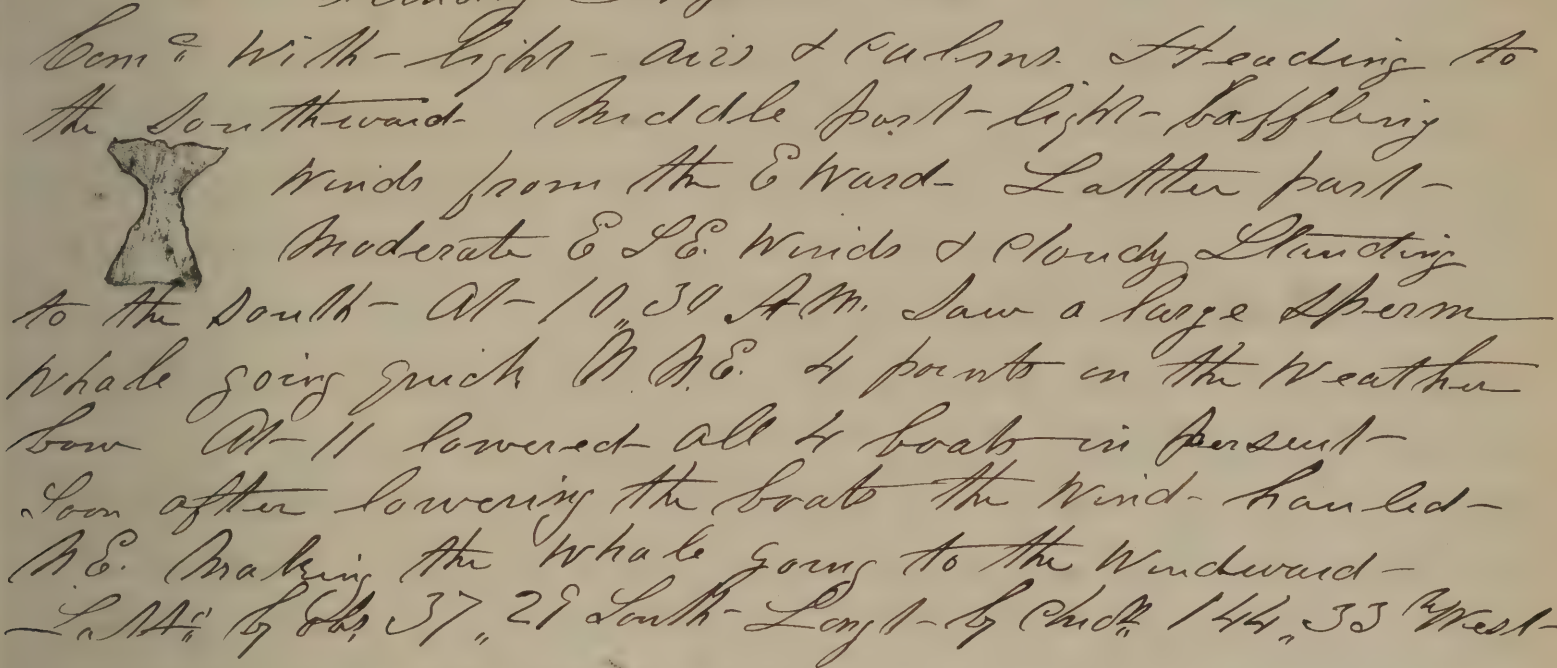 Comc with light airs & Calms. Heading to
the Southward Middle part light baffling
Winds from the E Ward Latter part
Moderate E S E. Winds & Cloudy Standing
to the South At 10,,30 A.M. Saw a large Sperm
Whale going quick N. N.E. 4 points on the Weather
bow At 11 lowered all 4 boats in perseut
Soon after lowering the boats the Wind hauled
N.E. Making the Whale going to the Windward
Latt by Obs 37,,29 South Longt by Chro 144,,33 West